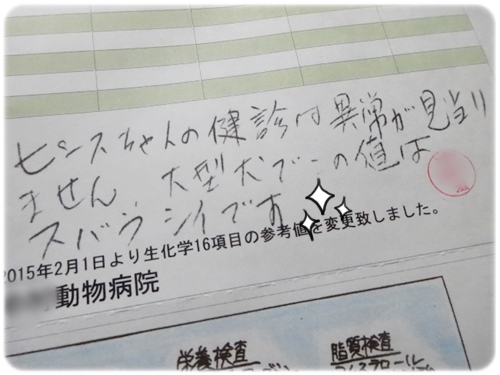 センスちゃんの健診は異常が見当り
ません。大型犬でこの値は
スバラシイです
2015年2月1日より生化学16項目の参考値を変更致しました。
動物病院
栄養検査
脂質検査
コレステロール